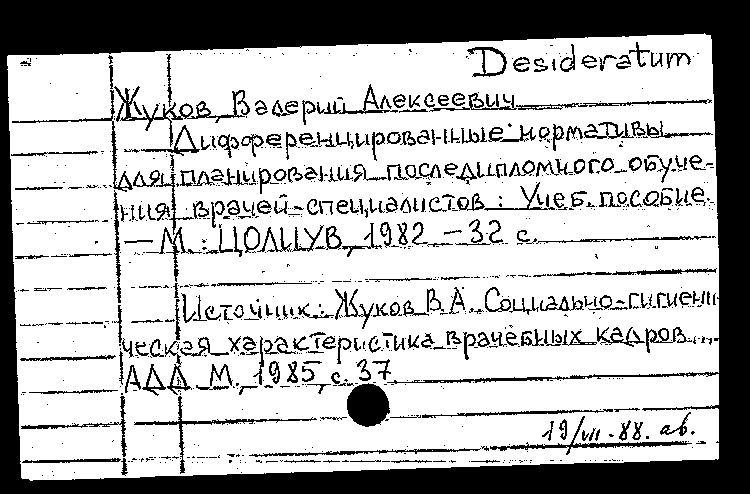 Desideratum
Жуков, Валерий Алексеевич
Дифференцированные нормативы
для планирования последипломного обуче-
ния врачей-специалистов : Учеб. пособие.
— М. : ЦОЛИУВ, 1982. — 32 с.
Источник: Жуков В.А. Социально-гигиени-
ческая характеристика врачебных кадров...
АДД М., 1985, с. 37
19/VII-88. ав.